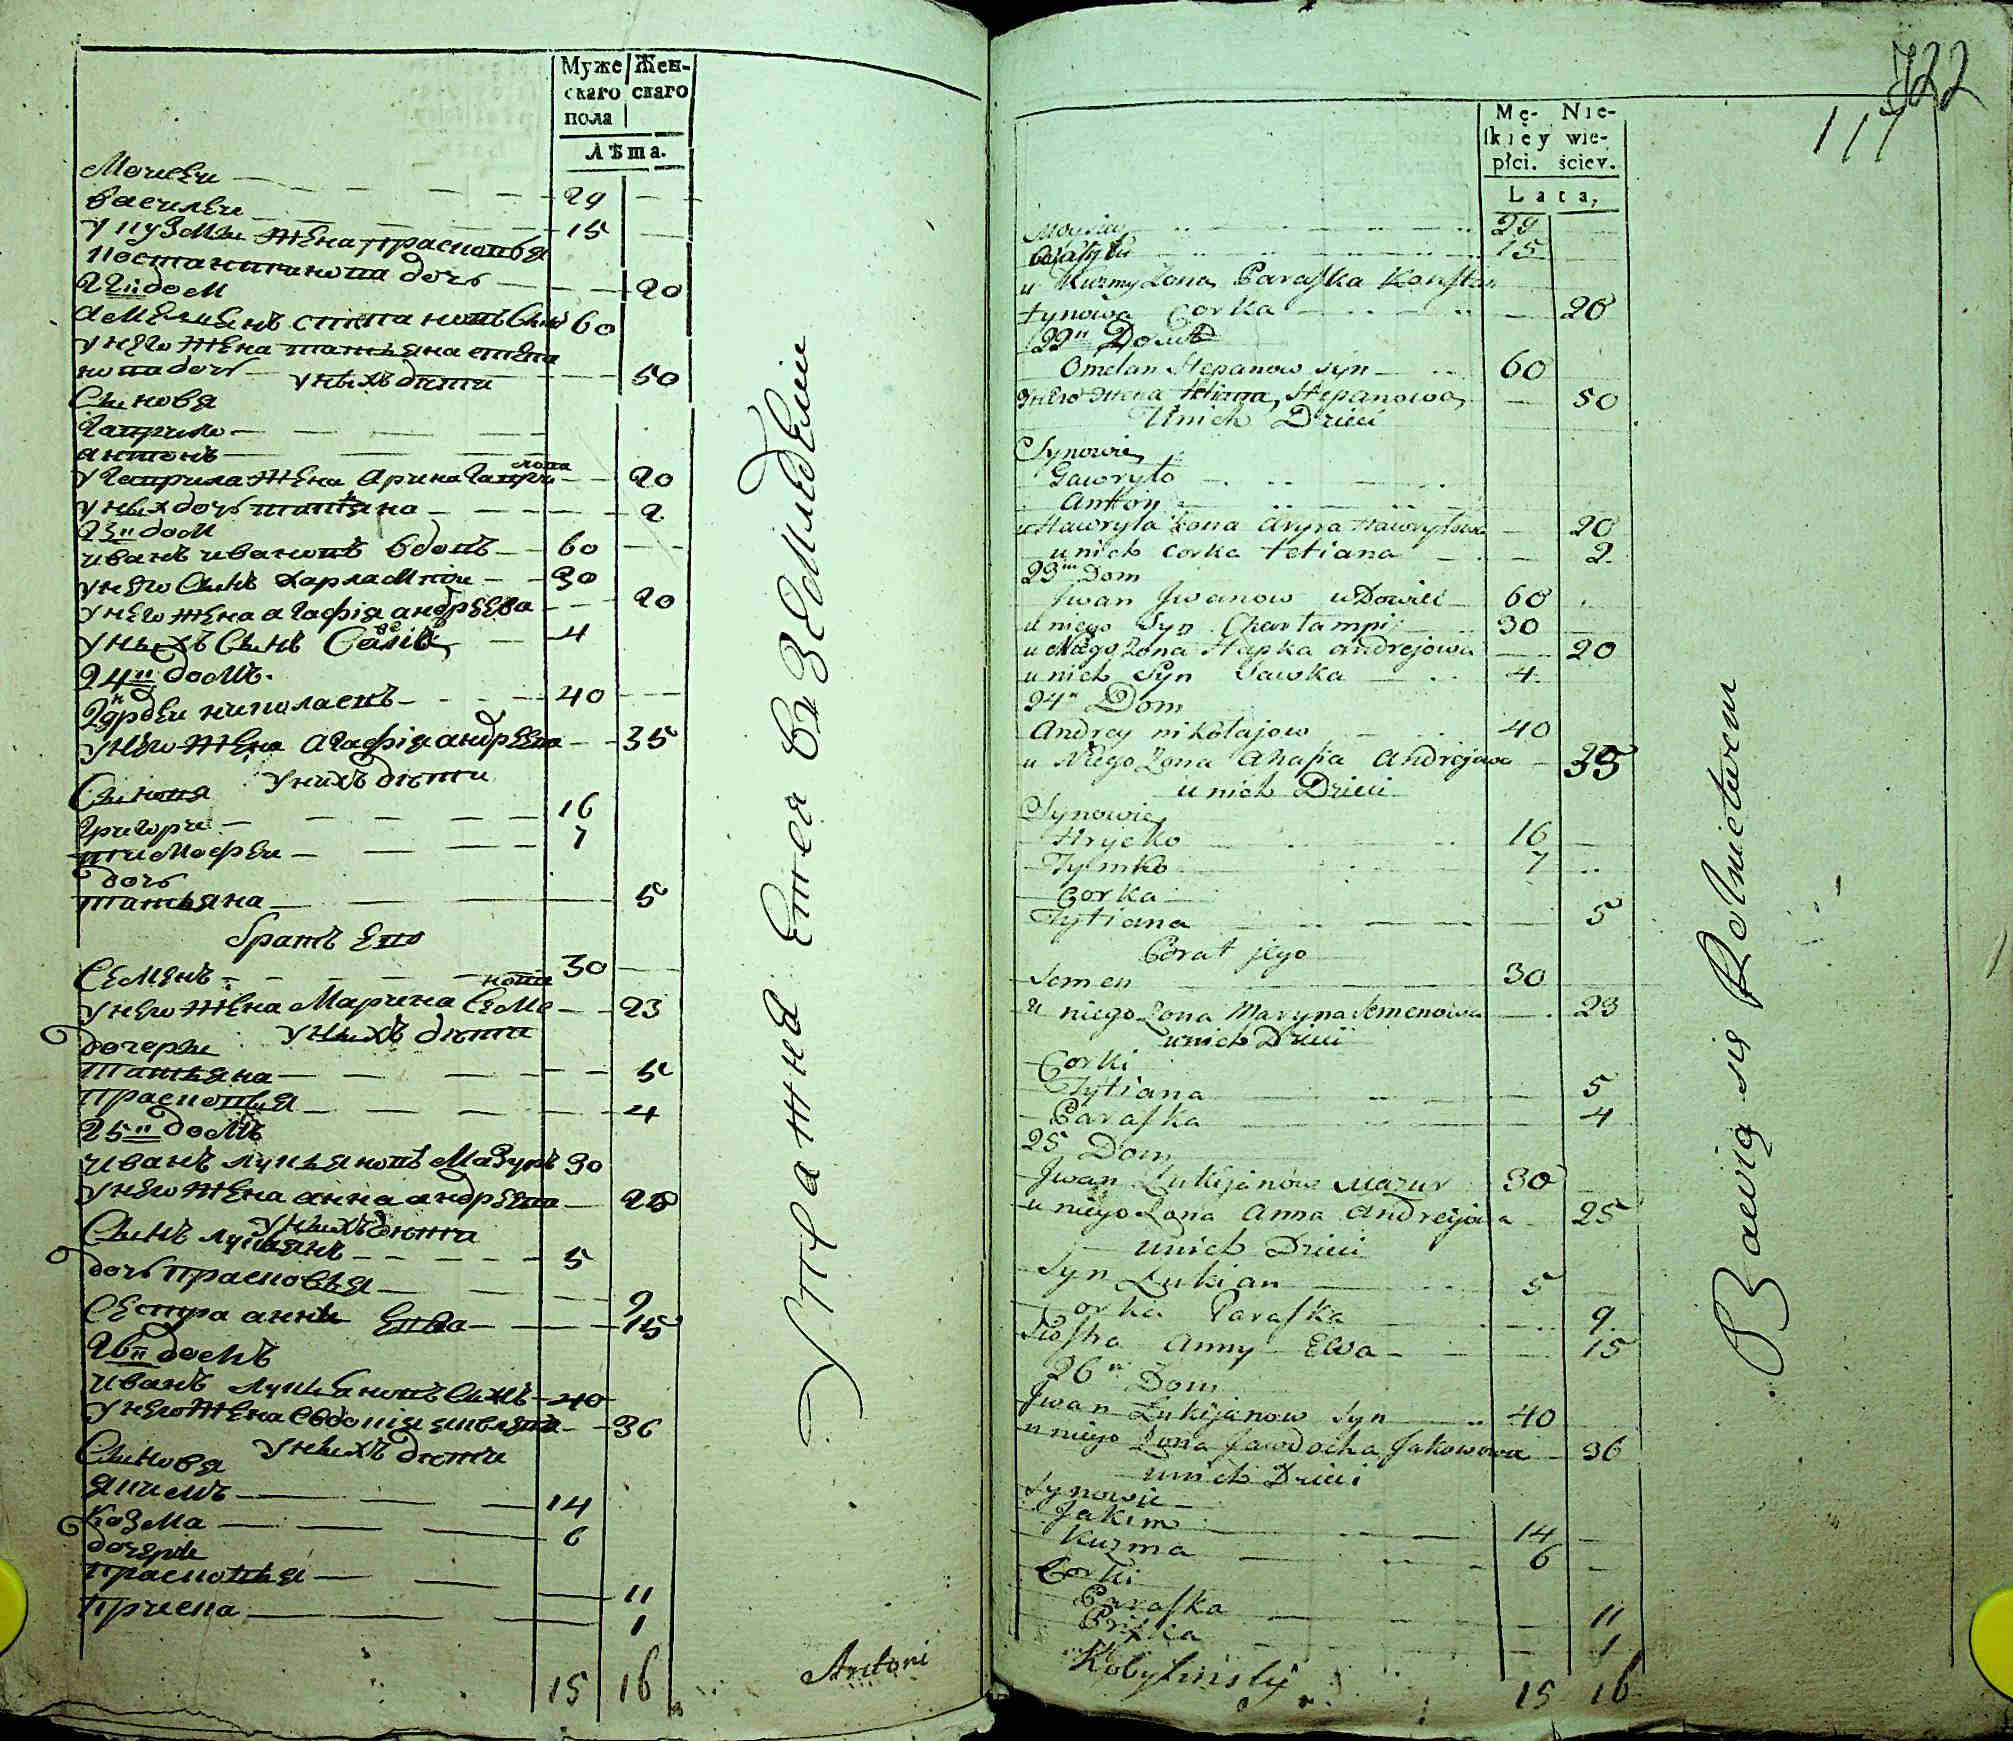 Муже Жен-
скаго скаго
пола
Лѣта.
Моисеи 29
Василеи 15
у Кузмы жена Прасковья
Костантинова дочь 20
22й дом
Амелиянъ Степановъ Сынъ 60
у него жена Татьяна Степа
нова дочь 50
у ныхъ дети
Сыновя
Гаврило
антонъ
у Гаврила жена Арина Гаври
лова 20
у ных дочь татяна 2
23й дом
иванъ ивановъ вдовъ 60
у него Сынъ Харлампи 30
у него жена агафія андреева 20
у ныхъ Сынъ Савка 4
24й домъ.
андреи николаевъ 40
у него жена агафія андреева 35
у нихъ дети
Сыновя
григори 16
тимофеи 7
дочь
татьяна 5
братъ Ево
Семенъ 30
у него жена Марина Семе
нова 23
у ныхъ дети
дочеры
татьяна 5
прасковья 4
25й домъ
иванъ лукьяновъ Мазуръ 30
у него жена анна андреева 25
у ныхъ дети
Сынъ лукьянъ 5
дочь прасковья 9
Сестра анны Ева 15
26й домъ
иванъ лукьяновъ Сынъ 40
у него жена Евдокія яковлева 36
у ныхъ дети
Сыновя
якимъ 14
Козма 6
дочеры
прасковья 11
Приска 1
15 16
Упражняется в земледелии
Antoni
722
117
Mę- Nie-
ſkiey wie-
płci. ściey.
Lata,
Moysiey 29
Wasyli 15
u Kuzmy Zona Paraſka Konſtan
tynowa Corka 20
22й Dom
Omelan Stepanow syn 60
u niego Zona Stepanowa 50
U nich Dzieci
Synowie
Gawryło
Anton
u Hawryla Zona Aryna Hawryłowa 20
u nich corka tetiana 2
23 Dom
Jwan Jwanow uDowiec 60
u niego Syn Charłampi 30
u Niego Zona Hapka andrejowa 20
u nich Syn Sawka 4
24й Dom
Andrey nikołajow 40
u Niego Zona Ahafia Andrejowa 35
u nich Dzieci
Synowie
Hryćko 16
Tymko 7
Corka
Tytiana 5
Brat jego
Semen 30
u niego Zona Maryna Semenowa 23
u nich Dzieci
Corki
Tytiana 5
Paraſka 4
25 Dom
Jwan Lukijanow Mazur 30
u niego Zona Anna Andrejowa 25
u nich Dzieci
Syn Lukian 5
Corka Paraſka 9
Sioſtra Anny Ewa 15
26й Dom
Jwan Lukijanow Syn 40
u niego Zona Jawdocha Jakowowa 36
u nich Dzieci
Synowie
Jakim 14
Kuzma 6
Corki
Paraſka 11
Priska 1
Kobylinsky
15 16
Bawią się Rolnictwem